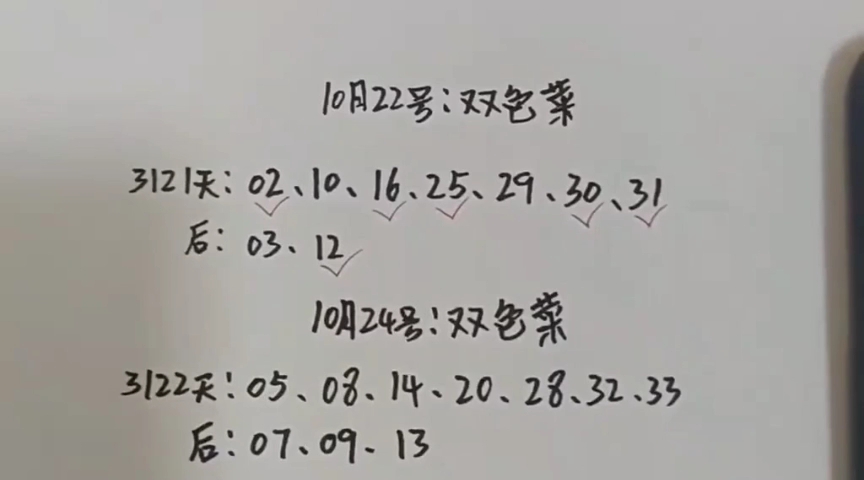 10月22号:双色菜
3121天:02、10、16、25、29、30、31
后:03、12
10月24号:双色菜
3122天:05、08、14、20、28、32、33
后:07、09、13